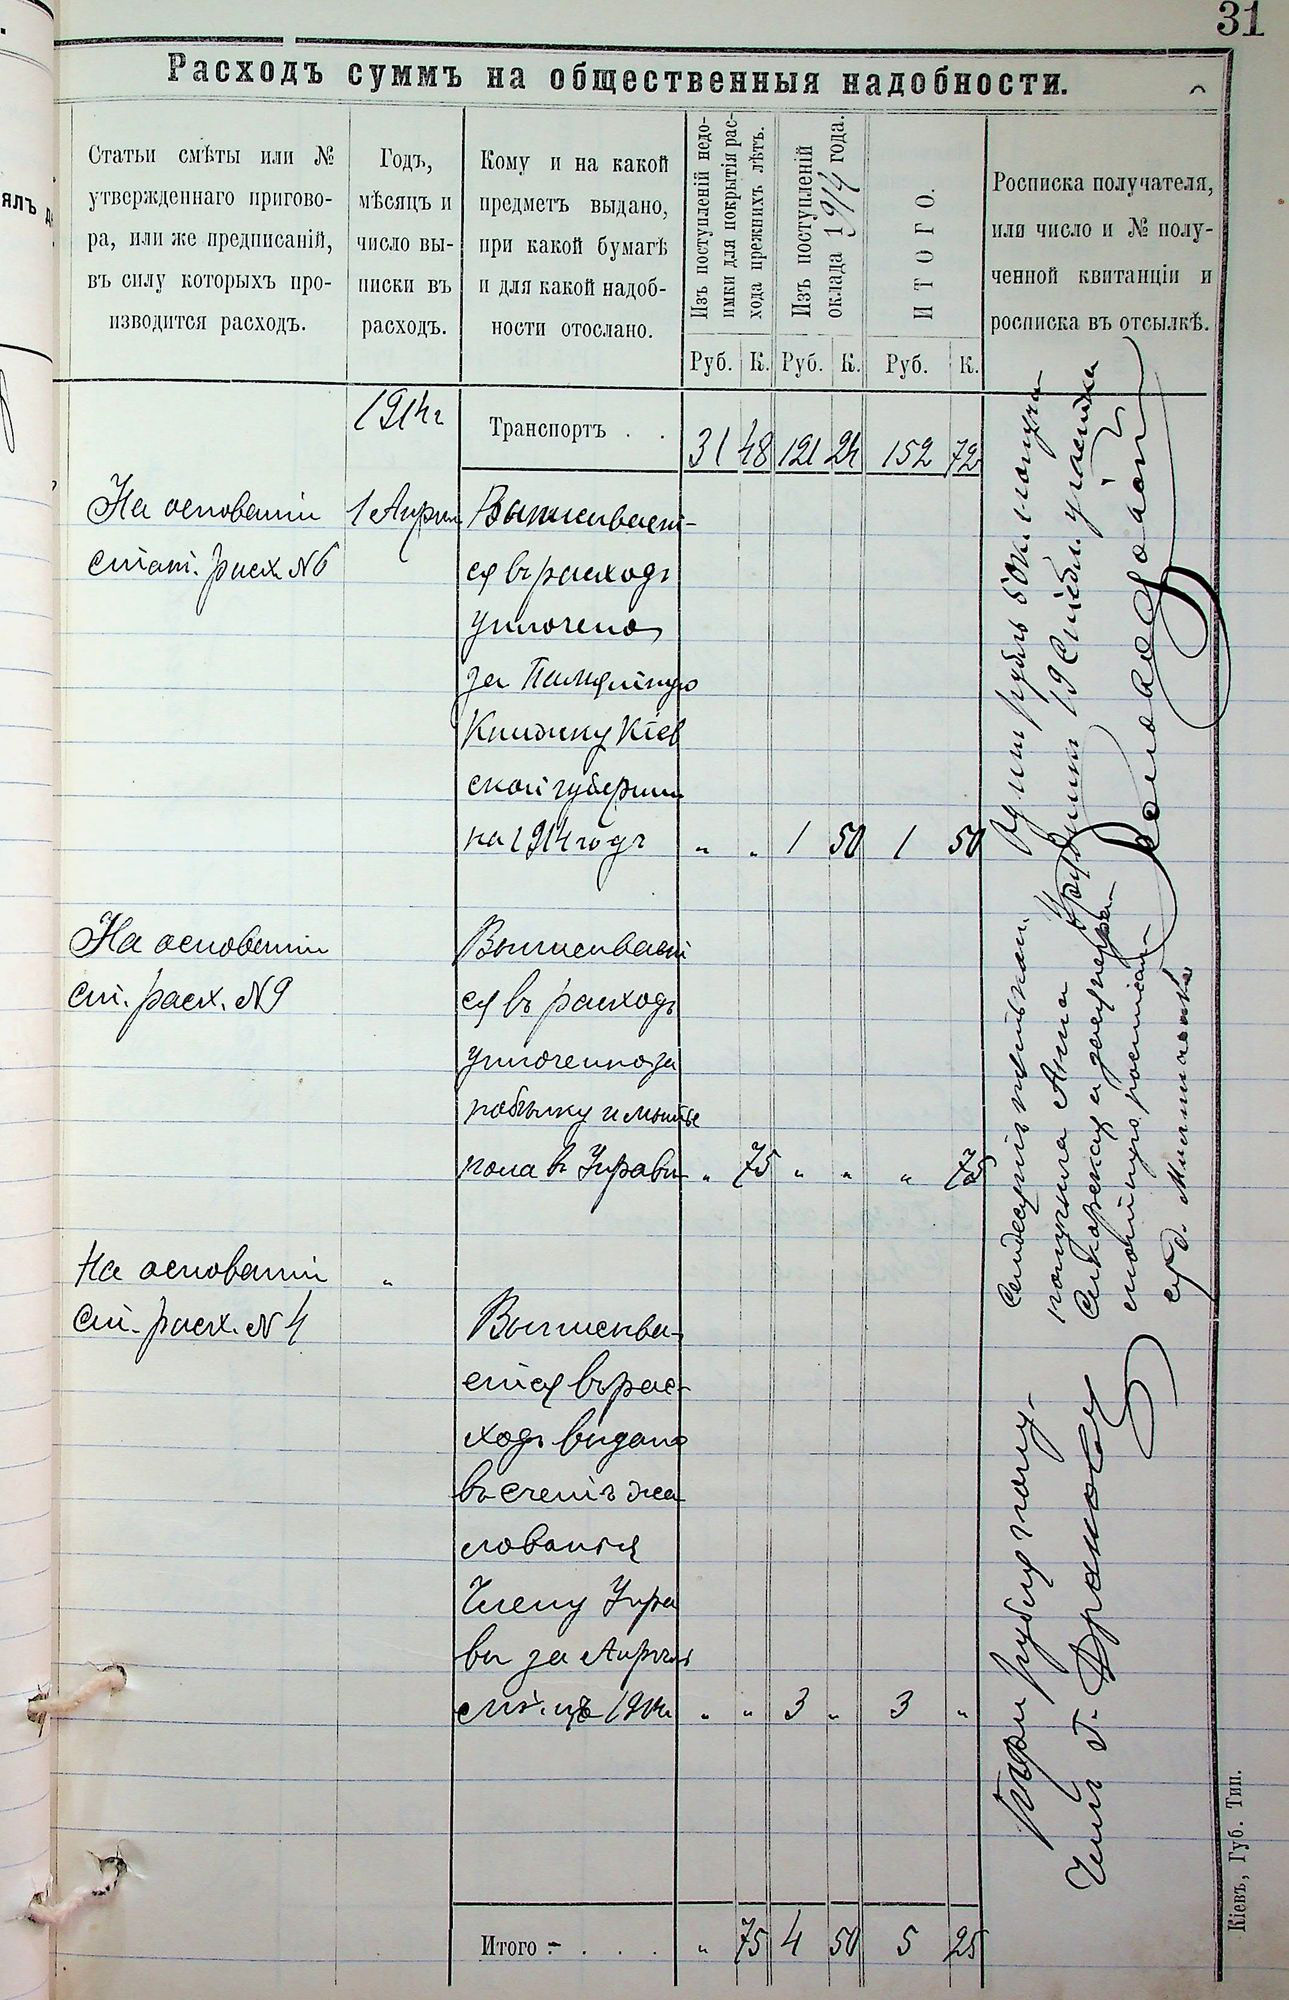 31
Расходъ суммъ на общественныя надобности.
Статьи смѣты или №
утвержденнаго пригово-
ра, или же предписаній,
въ силу которыхъ про-
изводится расходъ.
Годъ,
мѣсяцъ и
число вы-
писки въ
расходъ.
Кому и на какой
предметъ выдано,
при какой бумагѣ
и для какой надоб-
ности отослано.
Изъ поступленій недо-
имки для покрытія рас-
хода прежнихъ лѣтъ.
Изъ поступленій
оклада 1914 года.
ИТОГО.
Росписка получателя,
или число и № полу-
ченной квитанціи и
росписка въ отсылкѣ.
Руб. К. Руб. К. Руб. К.
1914 г
Транспортъ . . 31 48 121 24 152 72
На основаніи
стат. расх. №6
1 Апрѣля
Выписывает-
ся въ расходъ
уплочено
за Памятную
Книжку Кіев
ской губерніи
на 1914 годъ " " 1 50 1 50
Одинъ рубль 50 к. получи
19 участка
На основаніи
ст. расх. №9
Выписывает
ся въ расходъ
уплочено за
побѣлку и мытье
пола в Управѣ " 75 " " " 75
Семдесятъ пять коп.
получила Анна
а за неграм-
отную росписал
На основаніи
ст. расх. №4
"
Выписыва-
ется въ рас-
ходъ видано
въ счетъ жа
лованья
Члену Упра
вы за Апрѣль
мѣ-цъ 1914 г. " " 3 " 3 "
Три рубля полу-
Чилъ Г.
Итого - . . . . " 75 4 50 5 25
Кіевъ, Губ. Тип.